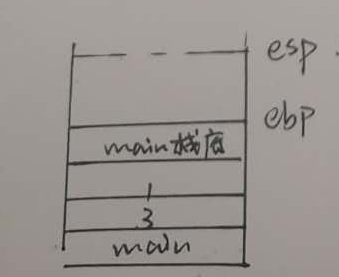 esp
ebp
main栈底
1
3
main